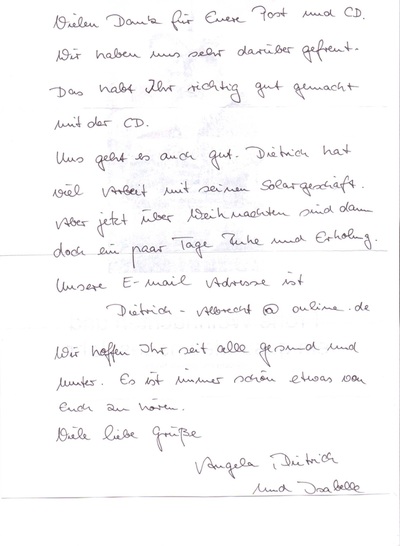 Vielen Dank für Euere Post und CD.
Wir haben uns sehr darüber gefreut.
Das habt Ihr richtig gut gemacht
mit der CD.
Uns geht es auch gut. Dietrich hat
viel Arbeit mit seinen Solargeschäft.
Aber jetzt über Weihnachten sind dann
doch ein paar Tage Ruhe und Erholung.
Unsere E-mail Adresse ist
Dietrich - Albrecht @ online.de
Wir hoffen Ihr seit alle gesund und
munter. Es ist immer schön etwas von
Euch zu hören.
Viele liebe Grüße
Angela, Dietrich
und Isabelle